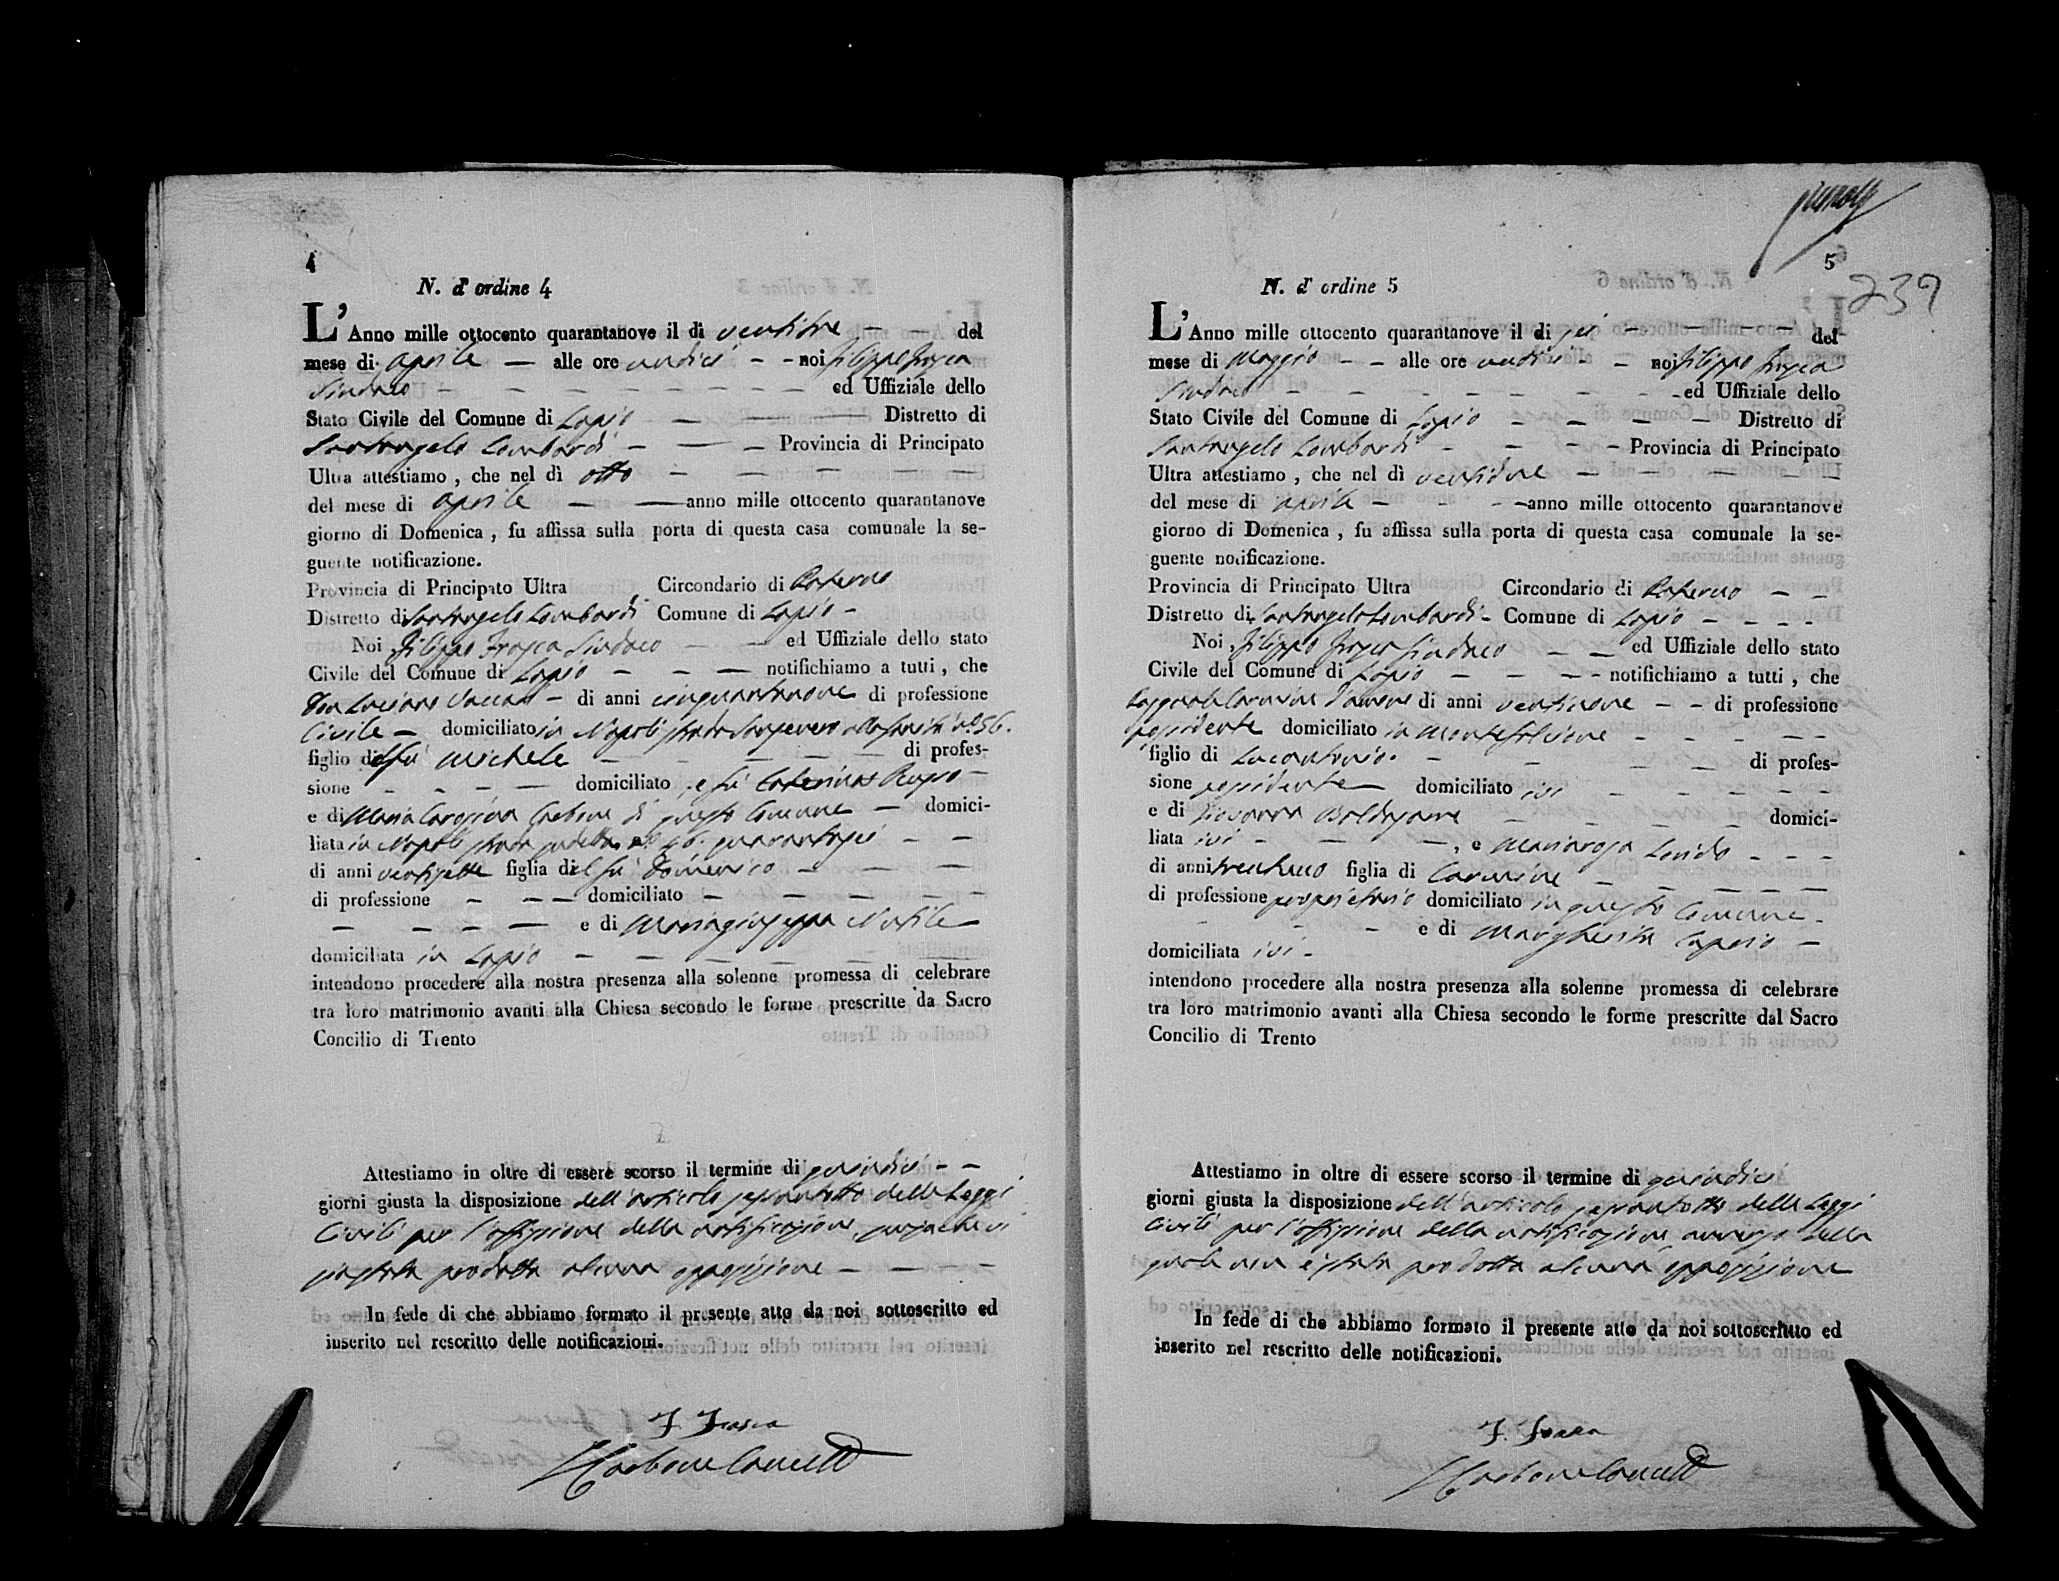 4
N. d' ordine 4
L'Anno mille ottocento quarantanove il dì ventitre — — del
mese di aprile — alle ore undici - - noi Filippo Frasca
Sindaco - - - - - - - - ed Uffiziale dello
Stato Civile del Comune di Lapio — — Distretto di
Santangelo Lombardi - — — Provincia di Principato
Ultra attestiamo, che nel dì otto - - - - - -
del mese di aprile — — anno mille ottocento quarantanove
giorno di Domenica, fu affissa sulla porta di questa casa comunale la se-
guente notificazione.
Provincia di Principato Ultra Circondario di Paterno
Distretto di Santangelo Lombardi Comune di Lapio -
Noi Filippo Frasca Sindaco - — ed Uffiziale dello stato
Civile del Comune di Lapio - - — notifichiamo a tutti, che
Don Luciano — di anni cinquantanove di professione
Civile — domiciliato in Napoli strada Sansevero n.° 56.
figlio del fù Michele — - - - - di profes-
sione - - - — domiciliato, e fù Caterina —
e di Maria Carbone di questo Comune — domici-
liata in Napoli strada n.° 46. quarantasei - -
di anni ventisette figlia del fù Domenico - — — —
di professione - — — domiciliato — — — — —
— - - — e di Mariagiuseppa —
domiciliata in Lapio — — — — — —
intendono procedere alla nostra presenza alla solenne promessa di celebrare
tra loro matrimonio avanti alla Chiesa secondo le forme prescritte da Sacro
Concilio di Trento
Attestiamo in oltre di essere scorso il termine di quindici - -
giorni giusta la disposizione dell'articolo sessantotto delle Leggi
Civili per l'affissione della notificazione, vi
sia stata prodotta alcuna opposizione — - - - -
In fede di che abbiamo formato il presente atto da noi sottoscritto ed
inserito nel rescritto delle notificazioni.
F. Frasca
Carbone
5
239
N. d' ordine 5
L'Anno mille ottocento quarantanove il dì sei - — — — del
mese di Maggio - - alle ore undici - - noi Filippo Frasca
Sindaco - - - - - - - ed Uffiziale dello
Stato Civile del Comune di Lapio - - - - Distretto di
Santangelo Lombardi - - - - Provincia di Principato
Ultra attestiamo, che nel dì ventidue - - - - -
del mese di aprile - - - anno mille ottocento quarantanove
giorno di Domenica, fu affissa sulla porta di questa casa comunale la se-
guente notificazione.
Provincia di Principato Ultra Circondario di Paterno - -
Distretto di Santangelo Lombardi - Comune di Lapio - - - -
Noi, Filippo Frasca Sindaco - — ed Uffiziale dello stato
Civile del Comune di Lapio - - - - notifichiamo a tutti, che
Carmine di anni ventinove - - di professione
possidente domiciliato in Montefalcione - - - - -
figlio di Lucantonio. - - - - di profes-
sione possidente domiciliato ivi - - - - -
e di Giovanna - - - - - domici-
liata ivi - - - , e Mariarosa - - -
di anni trentuno figlia di Carmine - - - - -
di professione proprietario domiciliato in questo Comune -
- - - e di Margherita —
domiciliata ivi -
intendono procedere alla nostra presenza alla solenne promessa di celebrare
tra loro matrimonio avanti alla Chiesa secondo le forme prescritte dal Sacro
Concilio di Trento
Attestiamo in oltre di essere scorso il termine di quindici
giorni giusta la disposizione dell'articolo sessantotto delle Leggi
Civili per l'affissione della notificazione avverso della
quale non è stata prodotta alcuna opposizione
In fede di che abbiamo formato il presente atto da noi sottoscritto ed
inserito nel rescritto delle notificazioni.
F. Frasca
Carbone